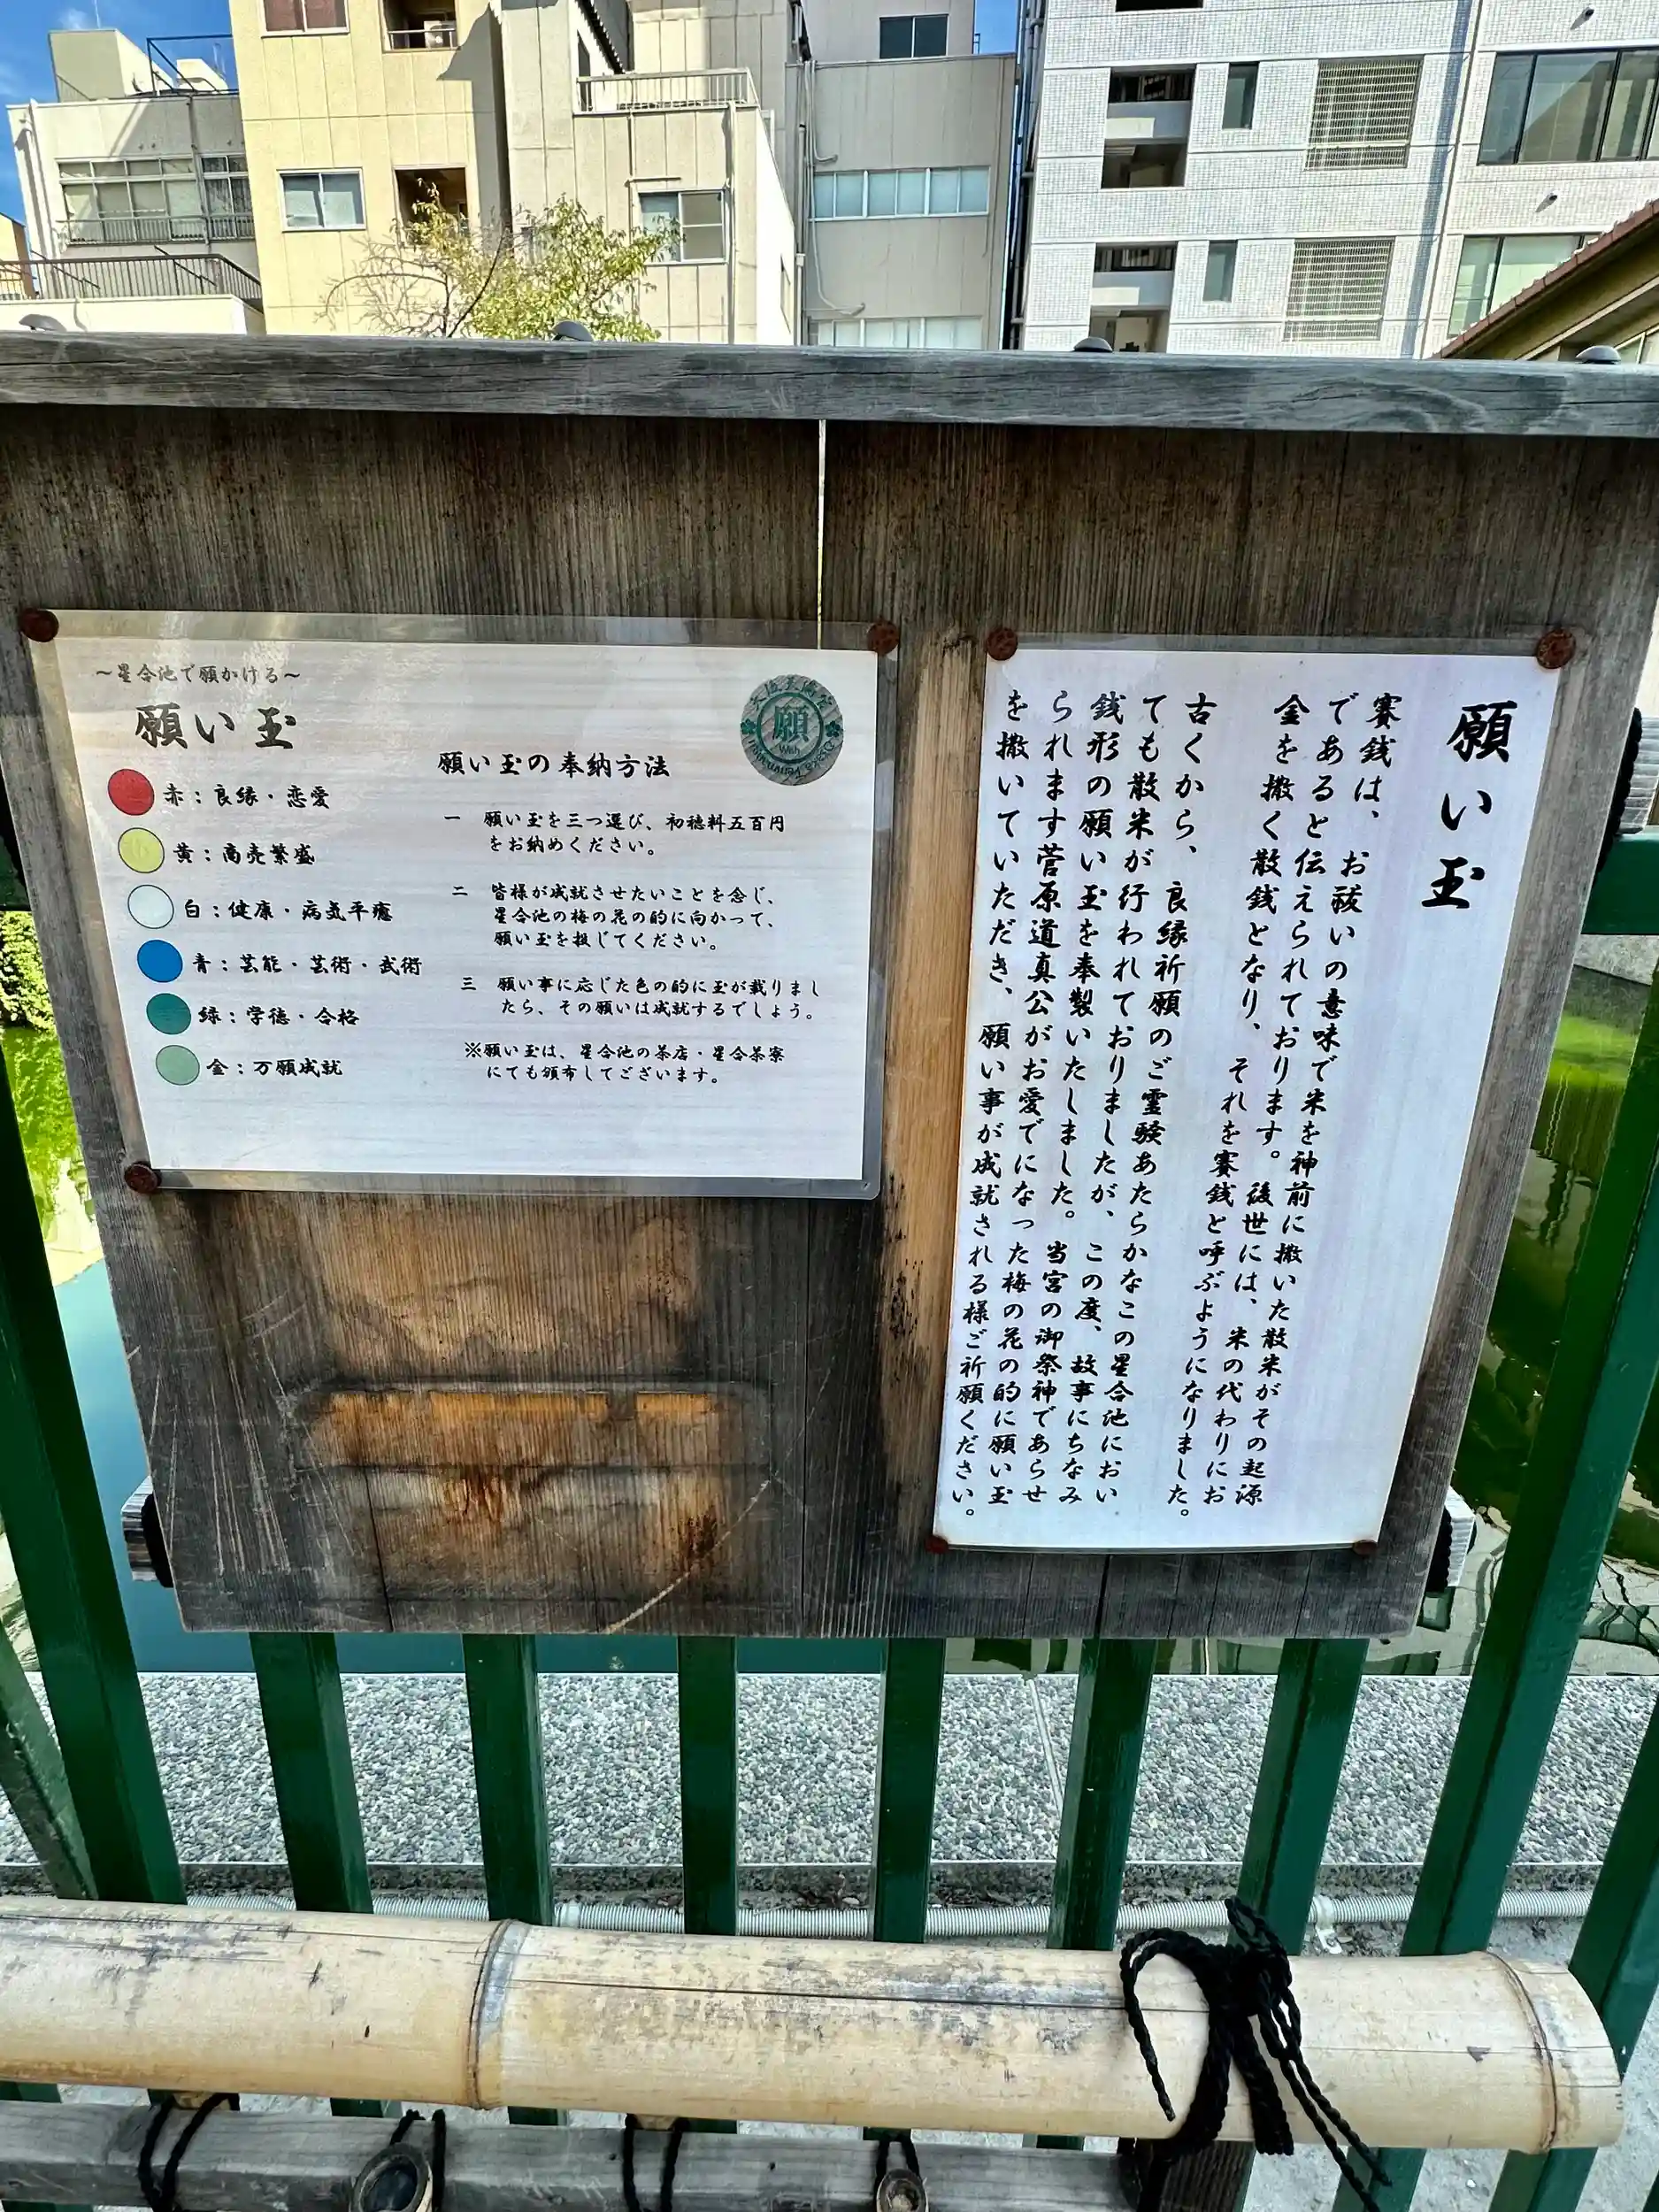 ～星合池で願かける～
願い玉
赤：良縁・恋愛
黄：商売繁盛
白：健康・病気平癒
青：芸能・芸術・武術
緑：学徳・合格
金：万願成就
願い玉の奉納方法
一 願い玉を三つ選び、初穂料五百円
をお納めください。
二 皆様が成就させたいことを念じ、
星合池の梅の花の的に向かって、
願い玉を投じてください。
三 願い事に応じた色の的に玉が載りまし
たら、その願いは成就するでしょう。
※願い玉は、星合池の茶店・星合茶寮
にても頒布してございます。
願
Wish
願い玉
賽銭は、お祓いの意味で米を神前に撒いた散米がその起源
であると伝えられております。後世には、米の代わりにお
金を撒く散銭となり、それを賽銭と呼ぶようになりました。
古くから、良縁祈願のご霊験あたらかなこの星合池におい
ても散米が行われておりましたが、この度、故事にちなみ
銭形の願い玉を奉製いたしました。当宮の御祭神であらせ
られます菅原道真公がお愛でになった梅の花の的に願い玉
を撒いていただき、願い事が成就される様ご祈願ください。